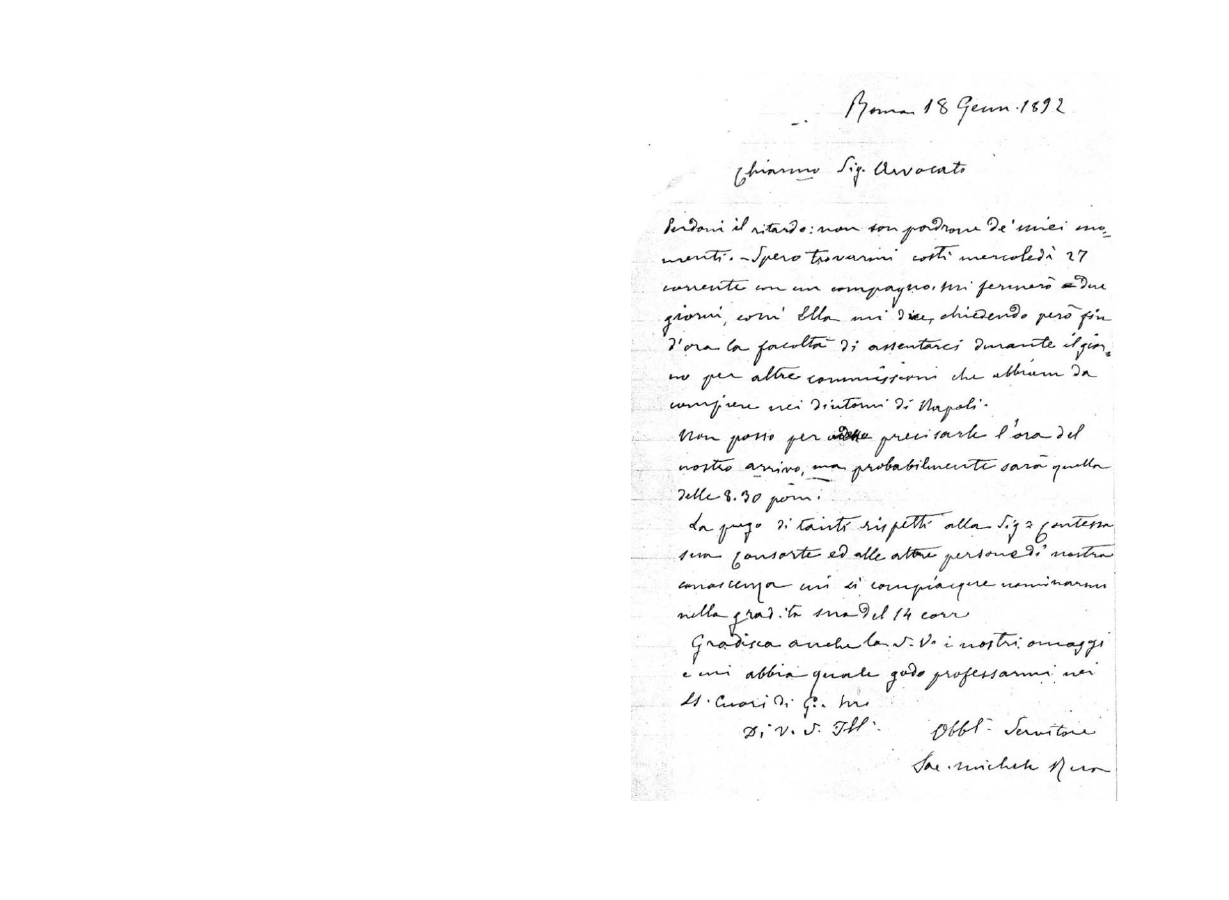 Roma 18 Genn. 1892
Chiarmo Sig. Avvocato
Perdoni il ritardo: non son padrone de' miei mo=
menti. - Spero trovarmi costì mercoledì 27
corrente con un compagno. Mi fermerò due
giorni, com' Ella mi dice, chiedendo però fin
d'ora la facoltà di assentarci durante il gior=
no per altre commissioni che abbiam da
compiere nei dintorni di Napoli.
Non posso per precisarle l'ora del
nostro arrivo, ma probabilmente sarà quella
delle 8.30 pom.
La prego di tanti rispetti alla Sig.a Contessa
sua Consorte ed alle altre persone di nostra
conoscenza cui si compiacque nominarmi
nella gradita sua del 14 corr
Gradisca anche la S. V. i nostri omaggi
e mi abbia quale godo professarmi nei
SS. Cuori di G. M.
Di V. S. Ill. Obbl. Servitore
Sac. Michele Rua